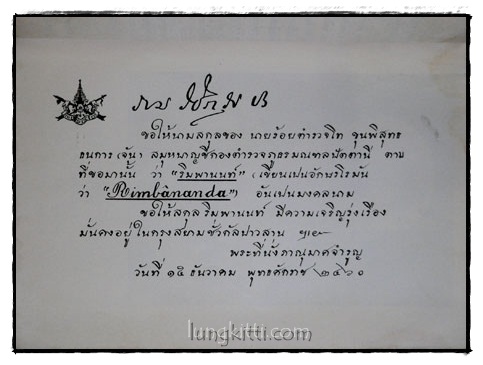 ขอให้นามสกุลของ นายร้อยตำรวจโท ขุนพิสุทธ
ธนการ (จัน) สมุหบาญชีกองตำรวจภูธรมณฑลปัตตานี ตาม
ที่ขอมานั้น ว่า "ริมพานนท์" (เขียนเปนอักษรโรมัน
ว่า "Rimbânanda") อันเปนมงคลนาม
ขอให้สกุลริมพานนท์ มีความเจริญรุ่งเรือง
มั่นคงอยู่ในกรุงสยามชั่วกัลปาวสาน
พระที่นั่งภาณุมาศจำรูญ
วันที่ ๑๕ ธันวาคม พุทธศักราช ๒๔๖๐
lungkitti.com